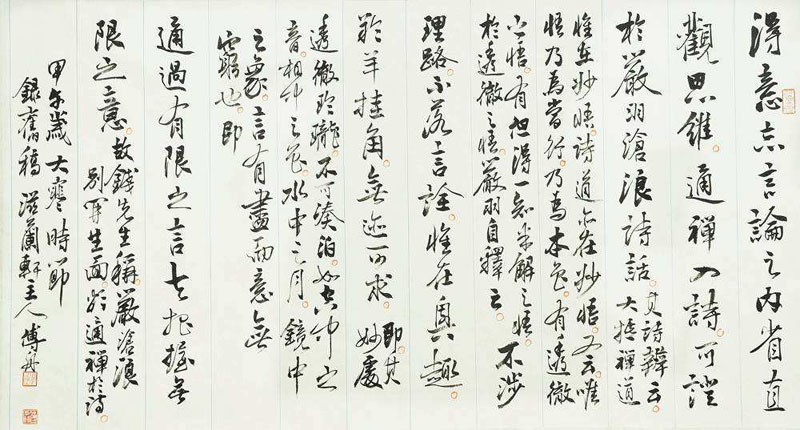 得意忘言論之内省直
觀思維通禪入詩可證
於嚴羽滄浪詩話其詩辯云
大抵禪道
惟在妙悟詩道亦在妙悟又云唯
悟乃為當行乃為本色有透徹
之悟有但得一知半解之悟
於透徹之悟嚴羽自釋云不涉
理路不落言詮惟在興趣
羚羊挂角無迹可求即其
妙處
透徹玲瓏不可湊泊如空中之
音相中之色水中之月鏡中
之象言有盡而意無
窮也即
通過有限之言去把握無
限之意故錢先生稱嚴滄浪
別開生面於通禪於詩
甲午歲大寒時節
錄舊稿滋蘭軒主人傅